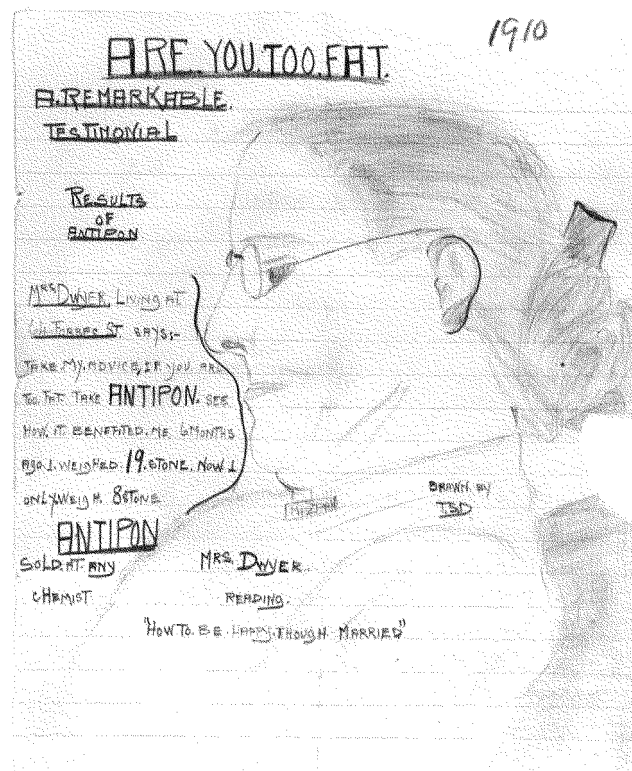 1910
ARE.YOU.TOO.FAT.
A.REMARKABLE.
TESTIMONIAL
RESULTS
OF
ANTIPON
MRS DWYER. LIVING AT
FORBES ST. SAYS;-
TAKE.MY.ADVICE, IF YOU ARE
TOO. FAT. TAKE ANTIPON. SEE
HOW. IT BENEFITED. ME. 6 MONTHS
AGO I. WEIGHED. 19. STONE. NOW I
ONLY WEIGH. 8 STONE
MIZPAH
DRAWN. BY
T.B.D
ANTIPON
SOLD. AT. ANY
CHEMIST
MRS. DWYER.
READING.
"HOW TO. BE HAPPY. THOUGH. MARRIED"